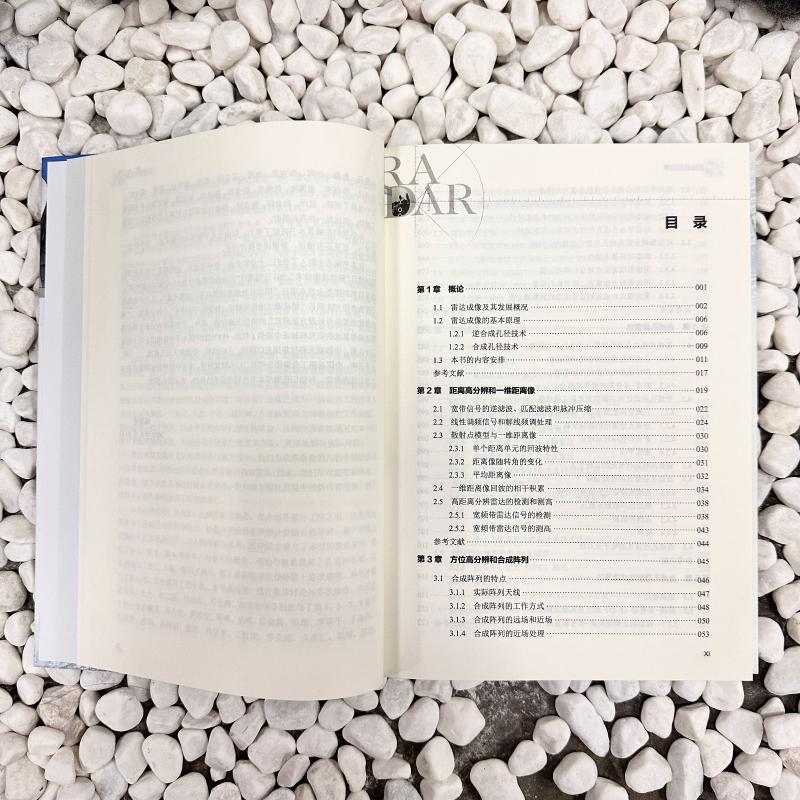 RA
DAR
目 录
第1章 概论 001
1.1 雷达成像及其发展概况 002
1.2 雷达成像的基本原理 006
1.2.1 逆合成孔径技术 006
1.2.2 合成孔径技术 009
1.3 本书的内容安排 011
参考文献 017
第2章 距离高分辨和一维距离像 019
2.1 宽带信号的逆滤波、匹配滤波和脉冲压缩 022
2.2 线性调频信号和解线频调处理 024
2.3 散射点模型与一维距离像 030
2.3.1 单个距离单元的回波特性 030
2.3.2 距离像随转角的变化 031
2.3.3 平均距离像 032
2.4 一维距离像回波的相干积累 034
2.5 高距离分辨雷达的检测和测高 038
2.5.1 宽频带雷达信号的检测 038
2.5.2 宽频带雷达信号的测高 043
参考文献 044
第3章 方位高分辨和合成阵列 045
3.1 合成阵列的特点 046
3.1.1 实际阵列天线 047
3.1.2 合成阵列的工作方式 048
3.1.3 合成阵列的远场和近场 050
3.1.4 合成阵列的近场处理 053
XI